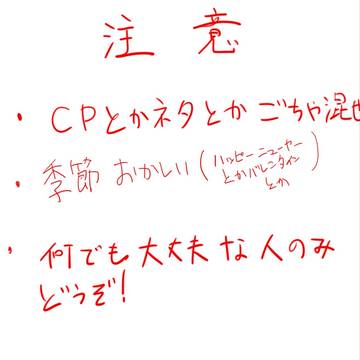 注意
・CPとかネタとかごちゃ混
・季節おかしい(ハッピーニューヤーとかバレンタインとか)
・何でも大丈夫な人のみ
どうぞ!